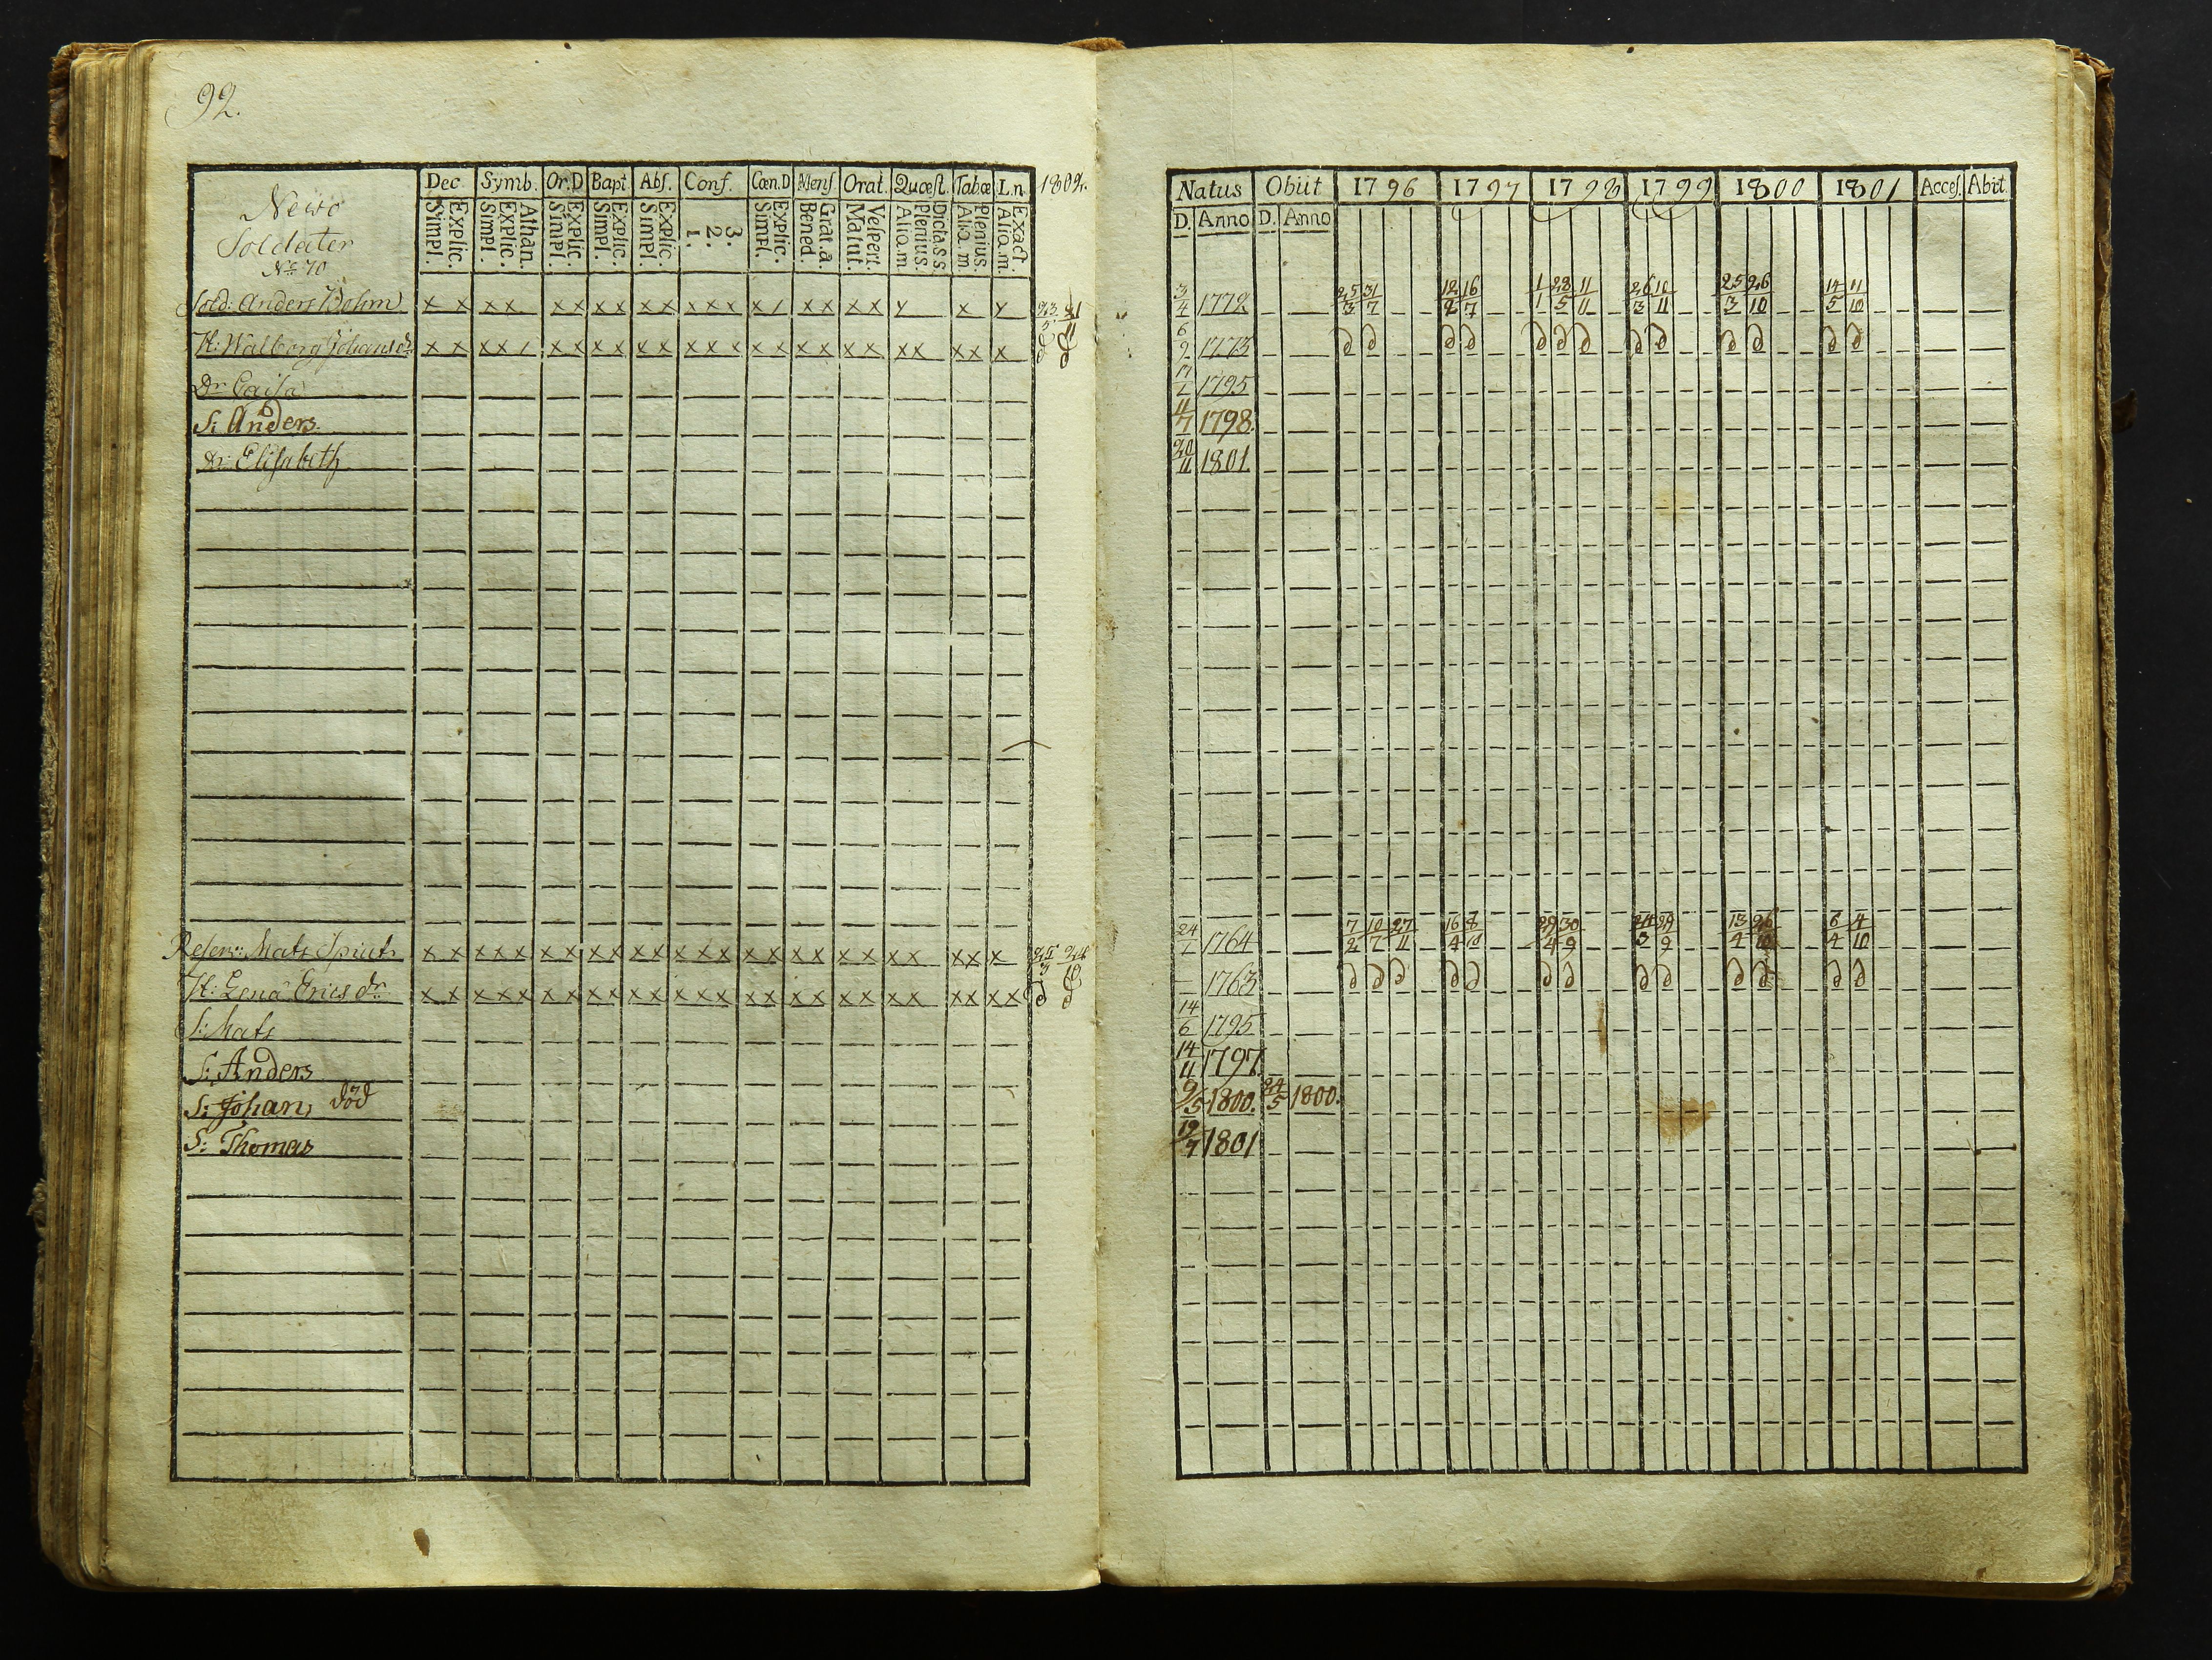 92.
Dec. Symb. Or.D Bapt. Abs. Conf. Cœn.D Mens. Orat. Quæst. Tabæ L.n. 1802.
Explic. Simpl. Athan. Explic. Simpl. Explic. Simpl. Explic. Simpl. Explic. Simpl. 3. 2. 1. Explic. Simpl. Grat.a. Bened. Vespert. Matut. Dictass. Plenius. Aliq.m. Plenius. Aliq.m. Exact. Aliq.m.
Soldater
No 70
Sold: Anders Bohm x x x x x x x x x x x x x x / x x x x x x
K: Walborg Johansdr x x x x / x x x x x x x x x x x x x x x x x x x x
Dr Caisa
S: Anders.
Dr: Elisabeth
Reserv: Mats x x x x x x x x x x x x x x x x x x x x x x x x x
K: Lena Ericsdr x x x x x x x x x x x x x x x x x x x x x x x x x x
S: Mats
S: Anders
S: Johan, död
S: Thomas
Natus Obiit 1796 1797 1798 1799 1800 1801 Acces. Abiit
D. Anno D. Anno
3/4 1772 25/3 31/7 12/2 16/7 1/1 28/5 11/11 26/3 10/11 25/3 26/10 14/5 11/10
6/9 1773 d d d d d d d d d d d d d
1795
11/7 1798.
20/11 1801
24/1 1764 7/2 10/7 27/11 16/4 8/10 29/4 30/9 24/3 29/9 13/4 26/10 6/4 4/10
1763 d d d d d d d d d d d d d
14/6 1795
14/11 1797
9/5 1800. 24/5 1800.
19/7 1801